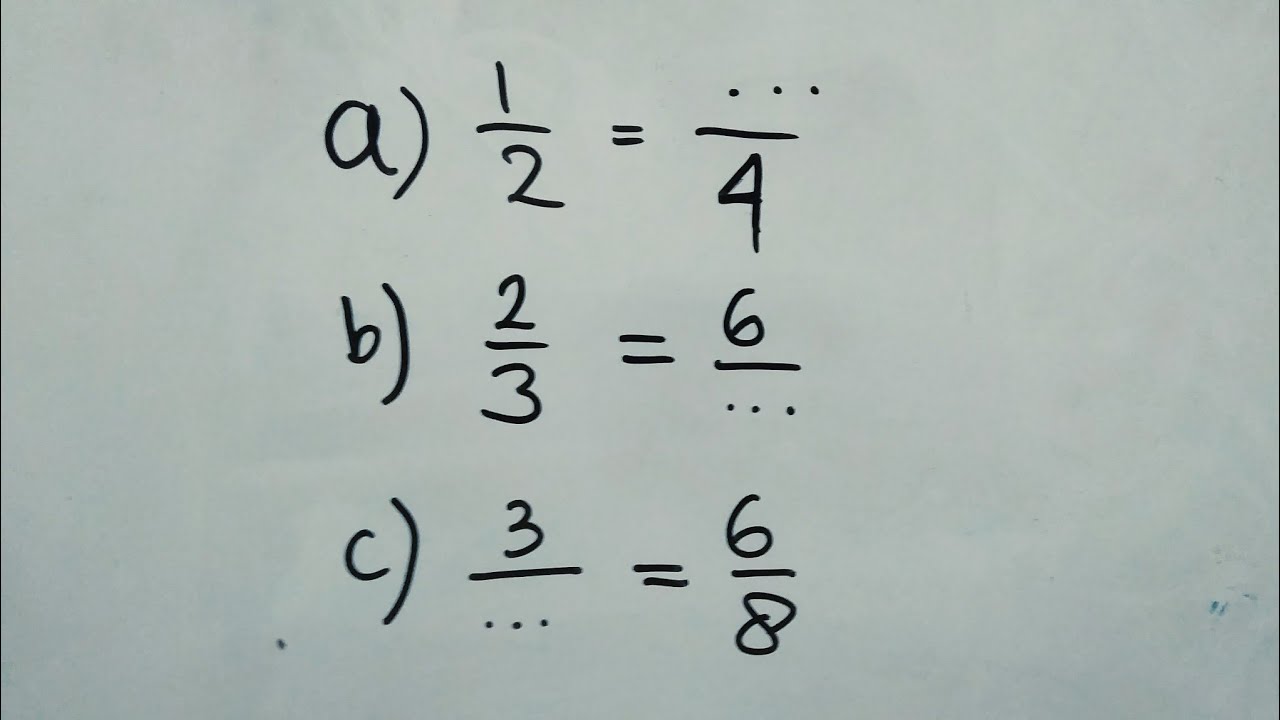 a) 1/2 = .../4
b) 2/3 = 6/...
c) 3/... = 6/8